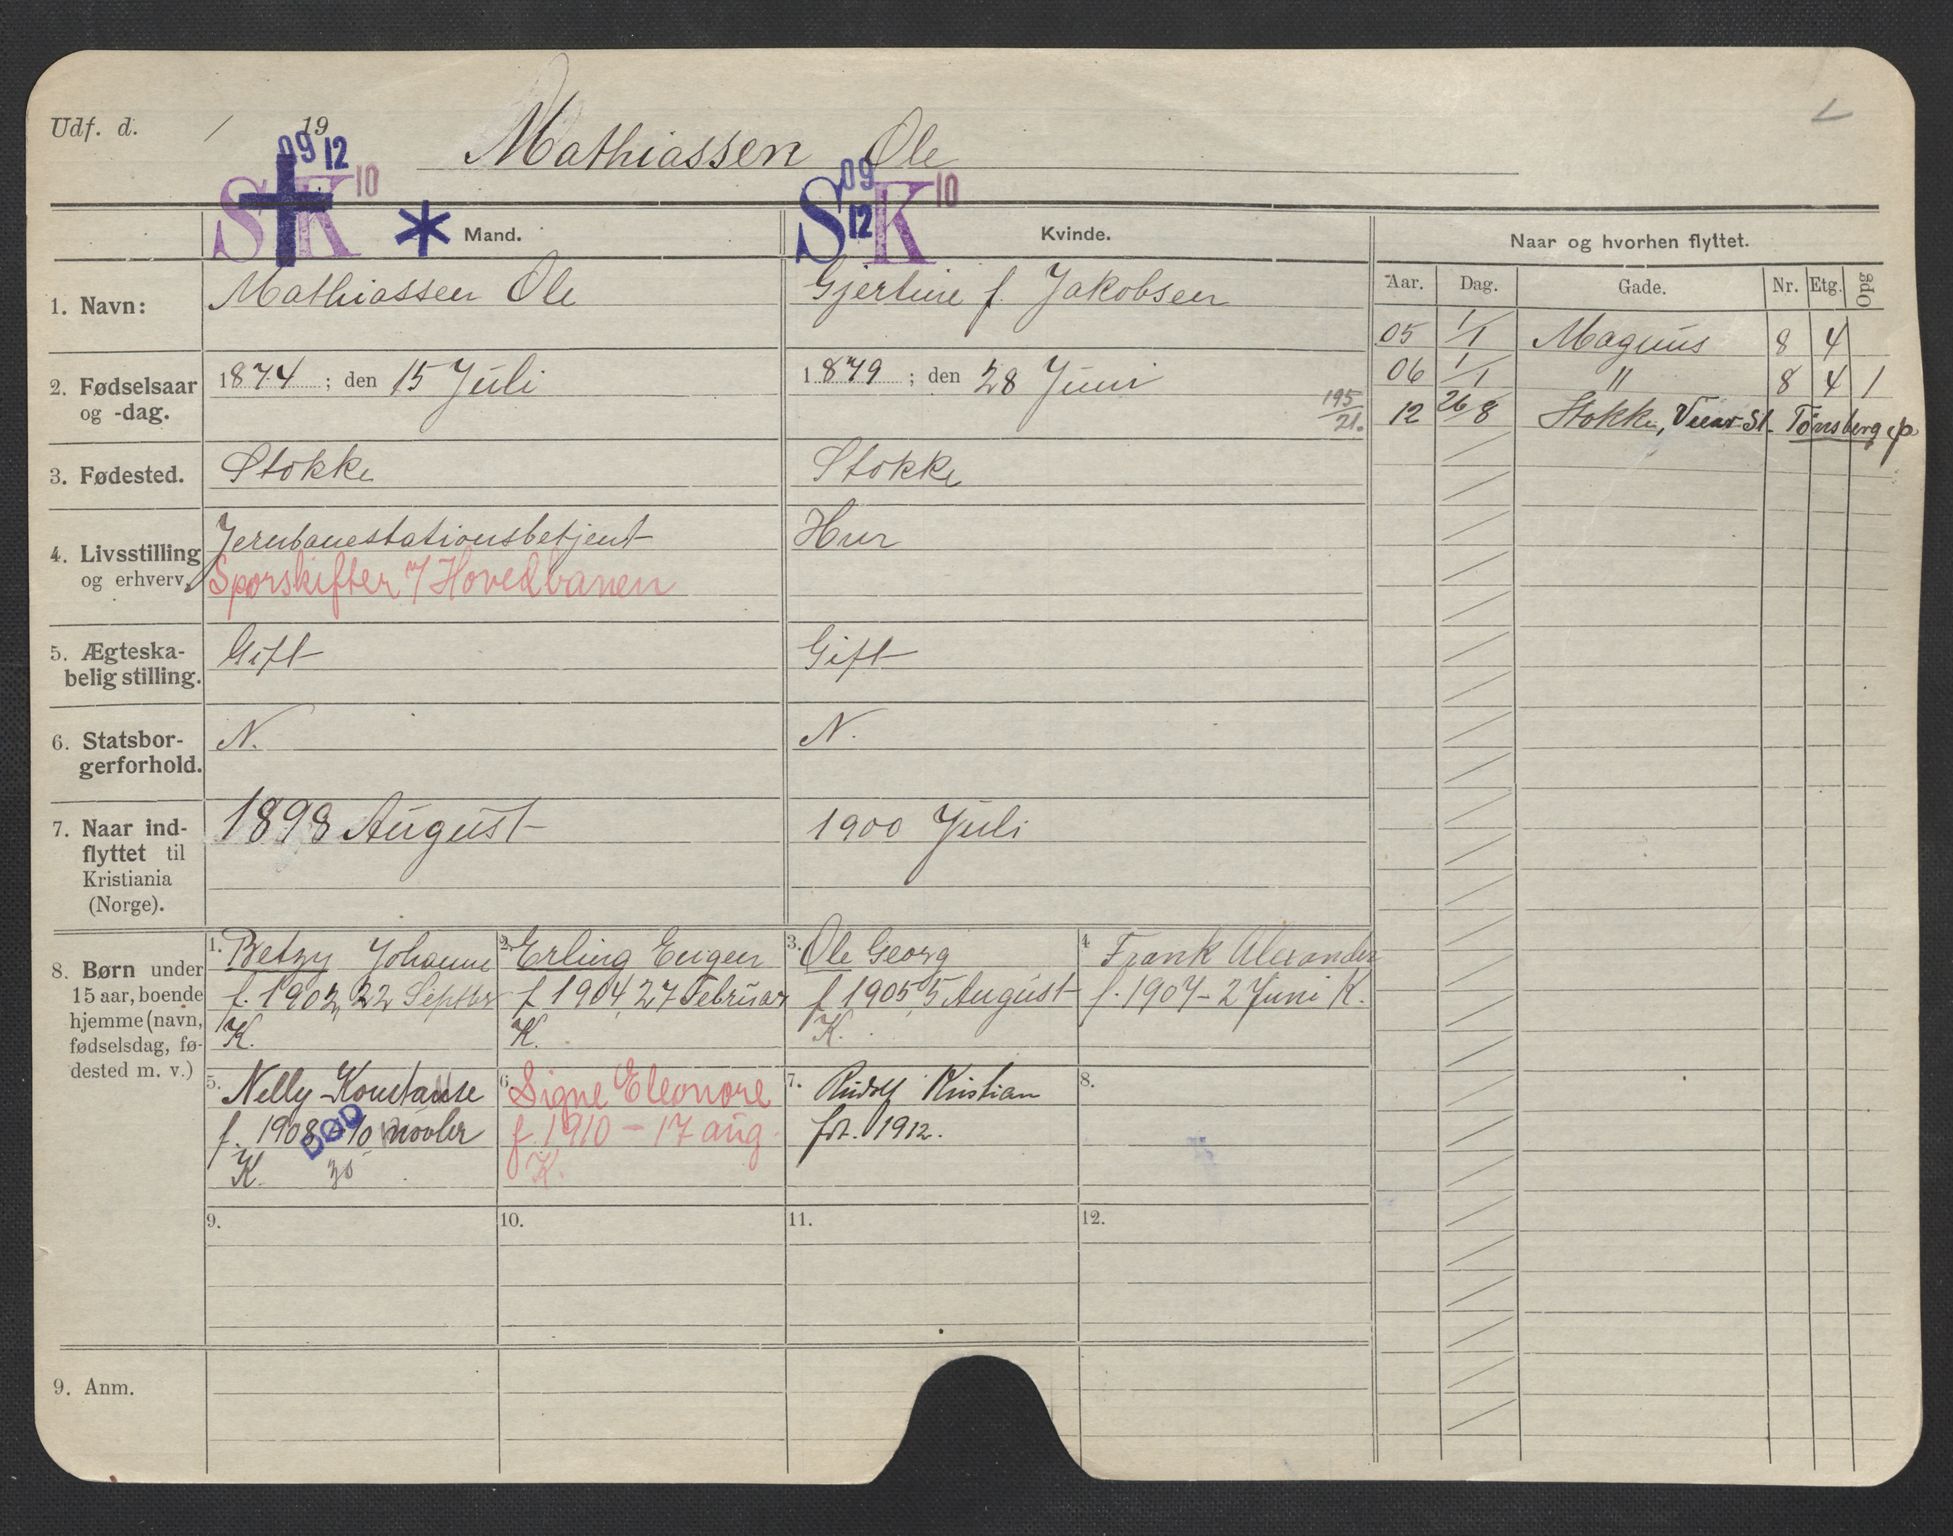 Udf. d. / 19
Mathiassen Ole
09 12
S K 10
09
S 12 K 10
Mand.
Kvinde.
Naar og hvorhen flyttet.
Aar. Dag. Gade. Nr. Etg. Opg
1. Navn:
Mathiassen Ole
Gjertine f. Jakobsen
05 1/1 Magnus 8 4
06 1/1 " 8 4 1
12 26/8 Stokke, Vear St. Tønsberg
2. Fødselsaar
og -dag.
1874; den 15 Juli
1879; den 28 Juni
195/21.
3. Fødested.
Stokke
Stokke
4. Livsstilling
og erhverv.
Jernbanestationsbetjent
Sporskifter v/ Hovedbanen
Hur
5. Ægteska-
belig stilling.
Gift
Gift
6. Statsbor-
gerforhold.
N.
N.
7. Naar ind-
flyttet til
Kristiania
(Norge).
1898 August
1900 Juli
8. Børn under
15 aar, boende
hjemme (navn,
fødselsdag, fø-
dested m. v.)
1. Betzy Johanne
f. 1902, 22 Septbr
K.
2. Erling Eugen
f 1904, 27 Februar
K.
3. Ole Georg
f 1905 5 August
K.
4. Frank Alexander
f. 1907 - 2 Juni K.
5. Nelly Konstanse
f. 1908 - 10 novbr
DØD
K.
6. Signe Eleonore
f 1910 - 17 aug.
K.
7. Rudolf Kristian
fdt. 1912.
8.
9.
10.
11.
12.
9. Anm.